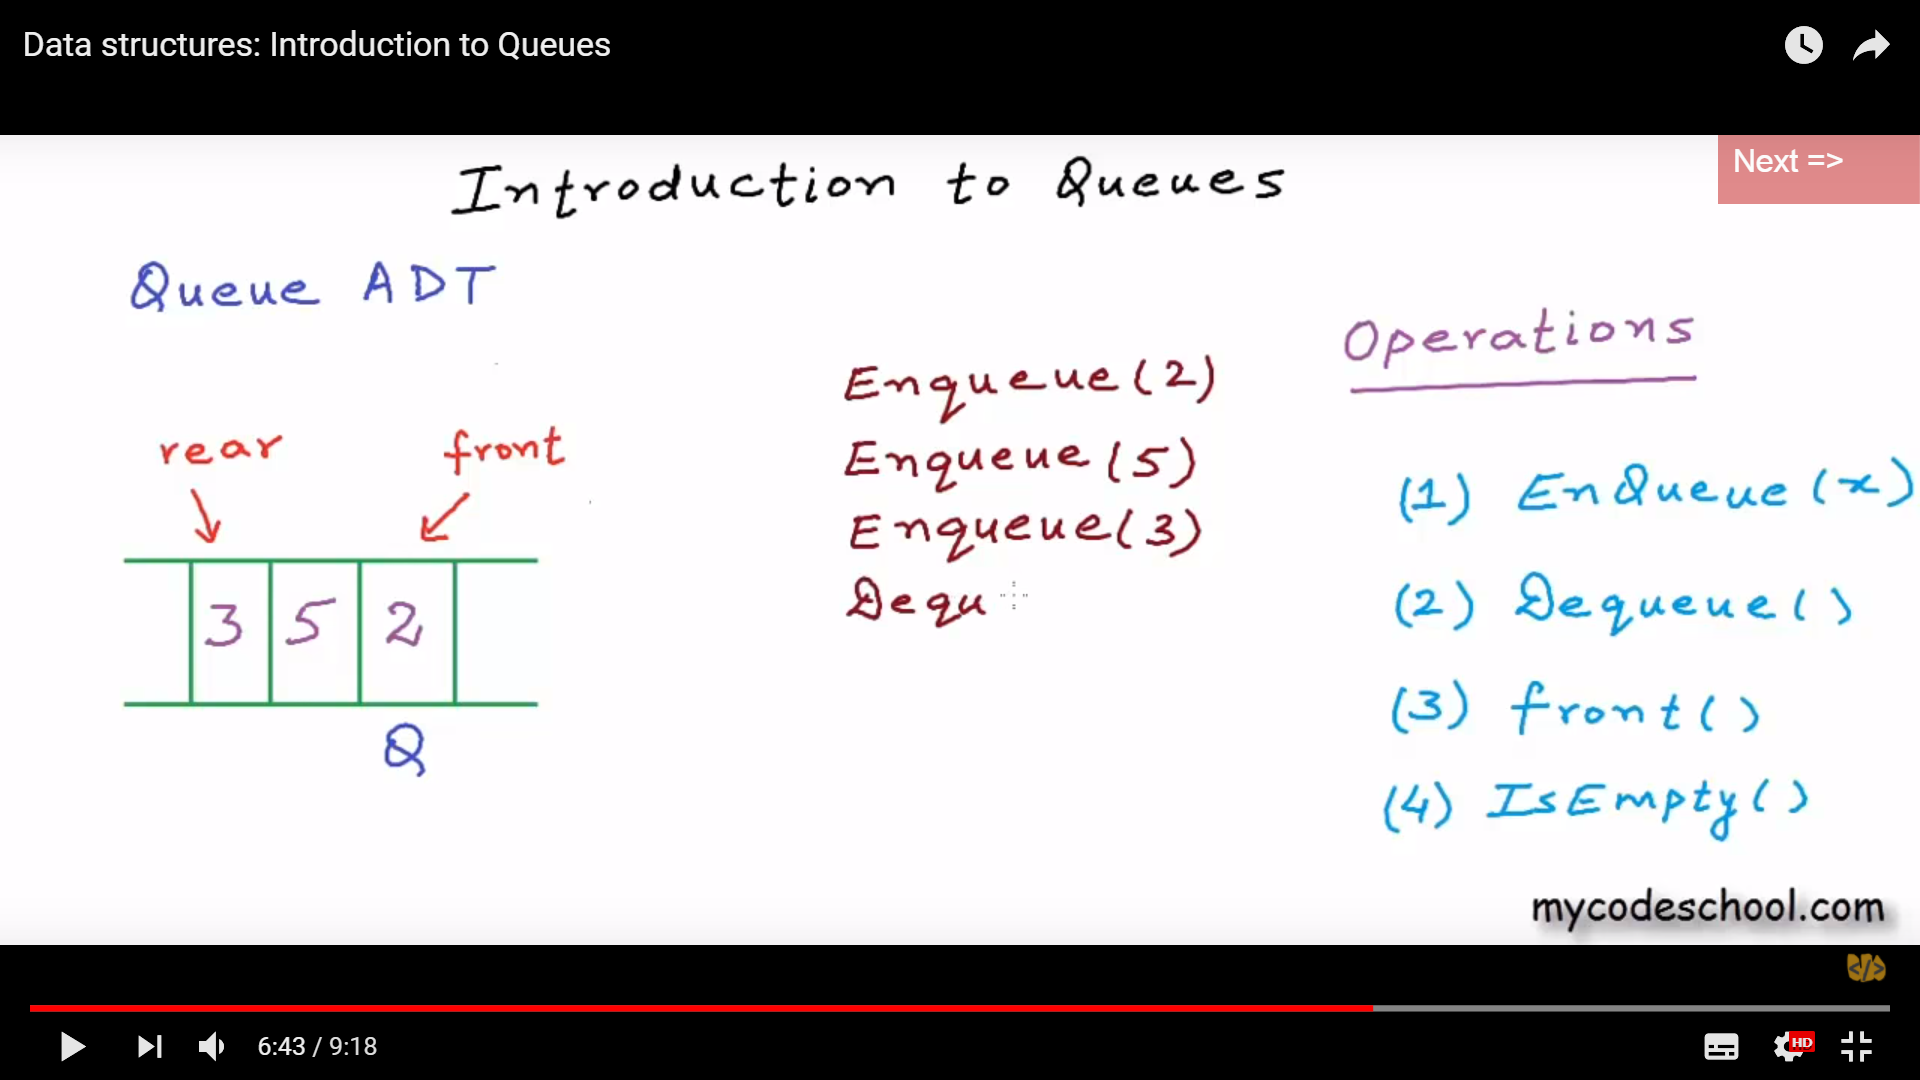 Data structures: Introduction to Queues
Next =>
Introduction to Queues
Queue ADT
rear
front
3 5 2
Q
Enqueue(2)
Enqueue(5)
Enqueue(3)
Dequ
Operations
(1) EnQueue(x)
(2) Dequeue()
(3) front()
(4) IsEmpty()
mycodeschool.com
</>
6:43 / 9:18
HD